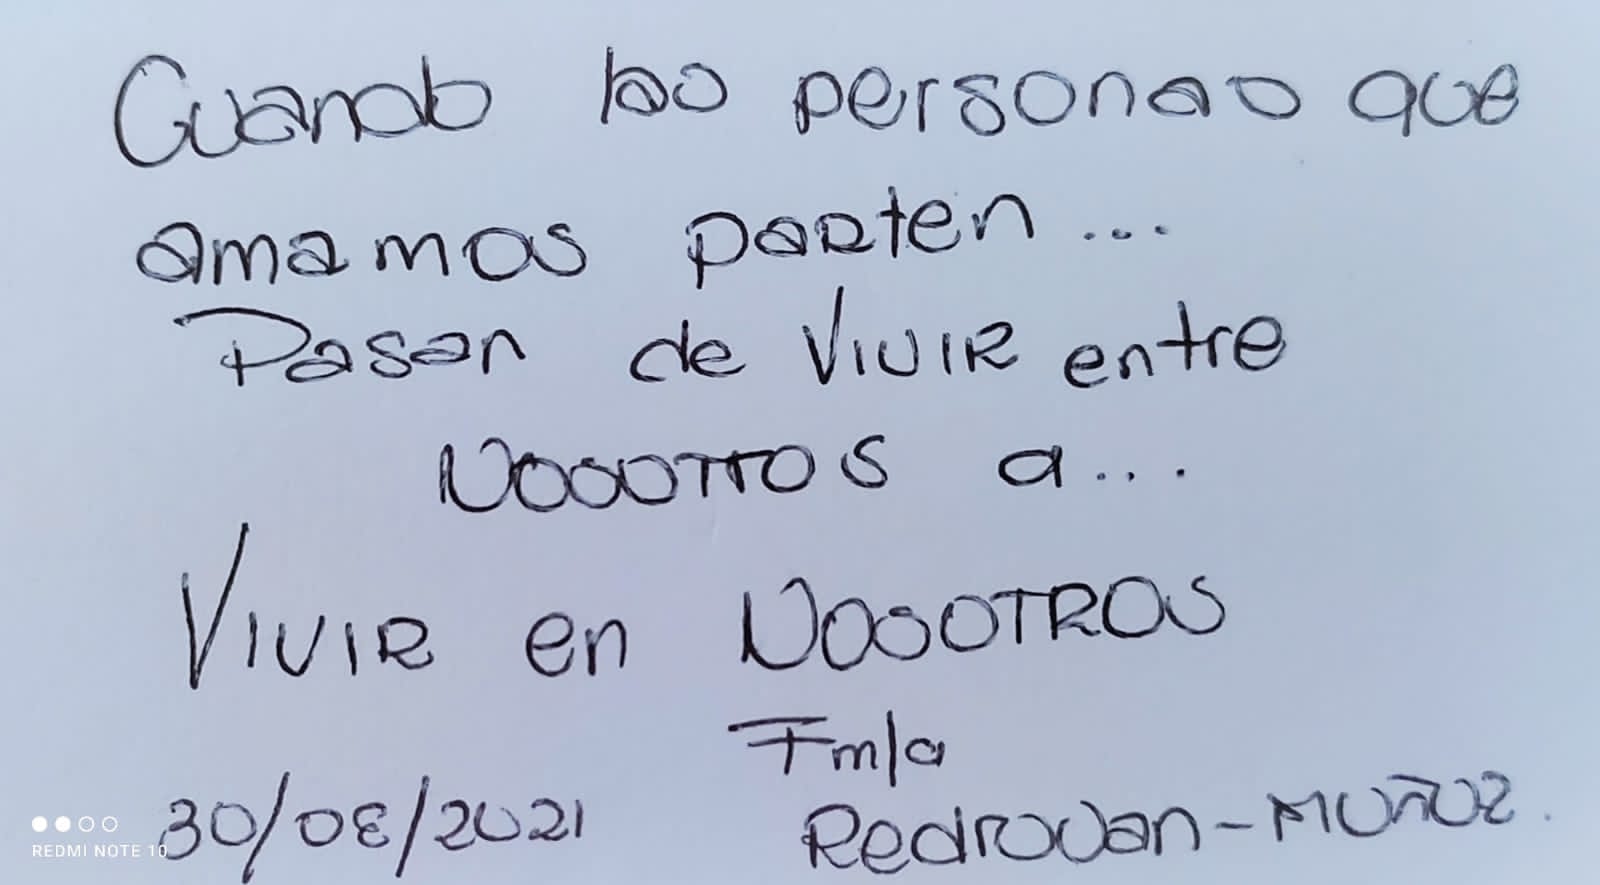 Cuando las personas que
amamos parten...
Pasan de VIVIR entre
NOSOTROS a...
VIVIR en NOSOTROS
Fmla
30/08/2021
Redrovan-MUÑOZ.
REDMI NOTE 10